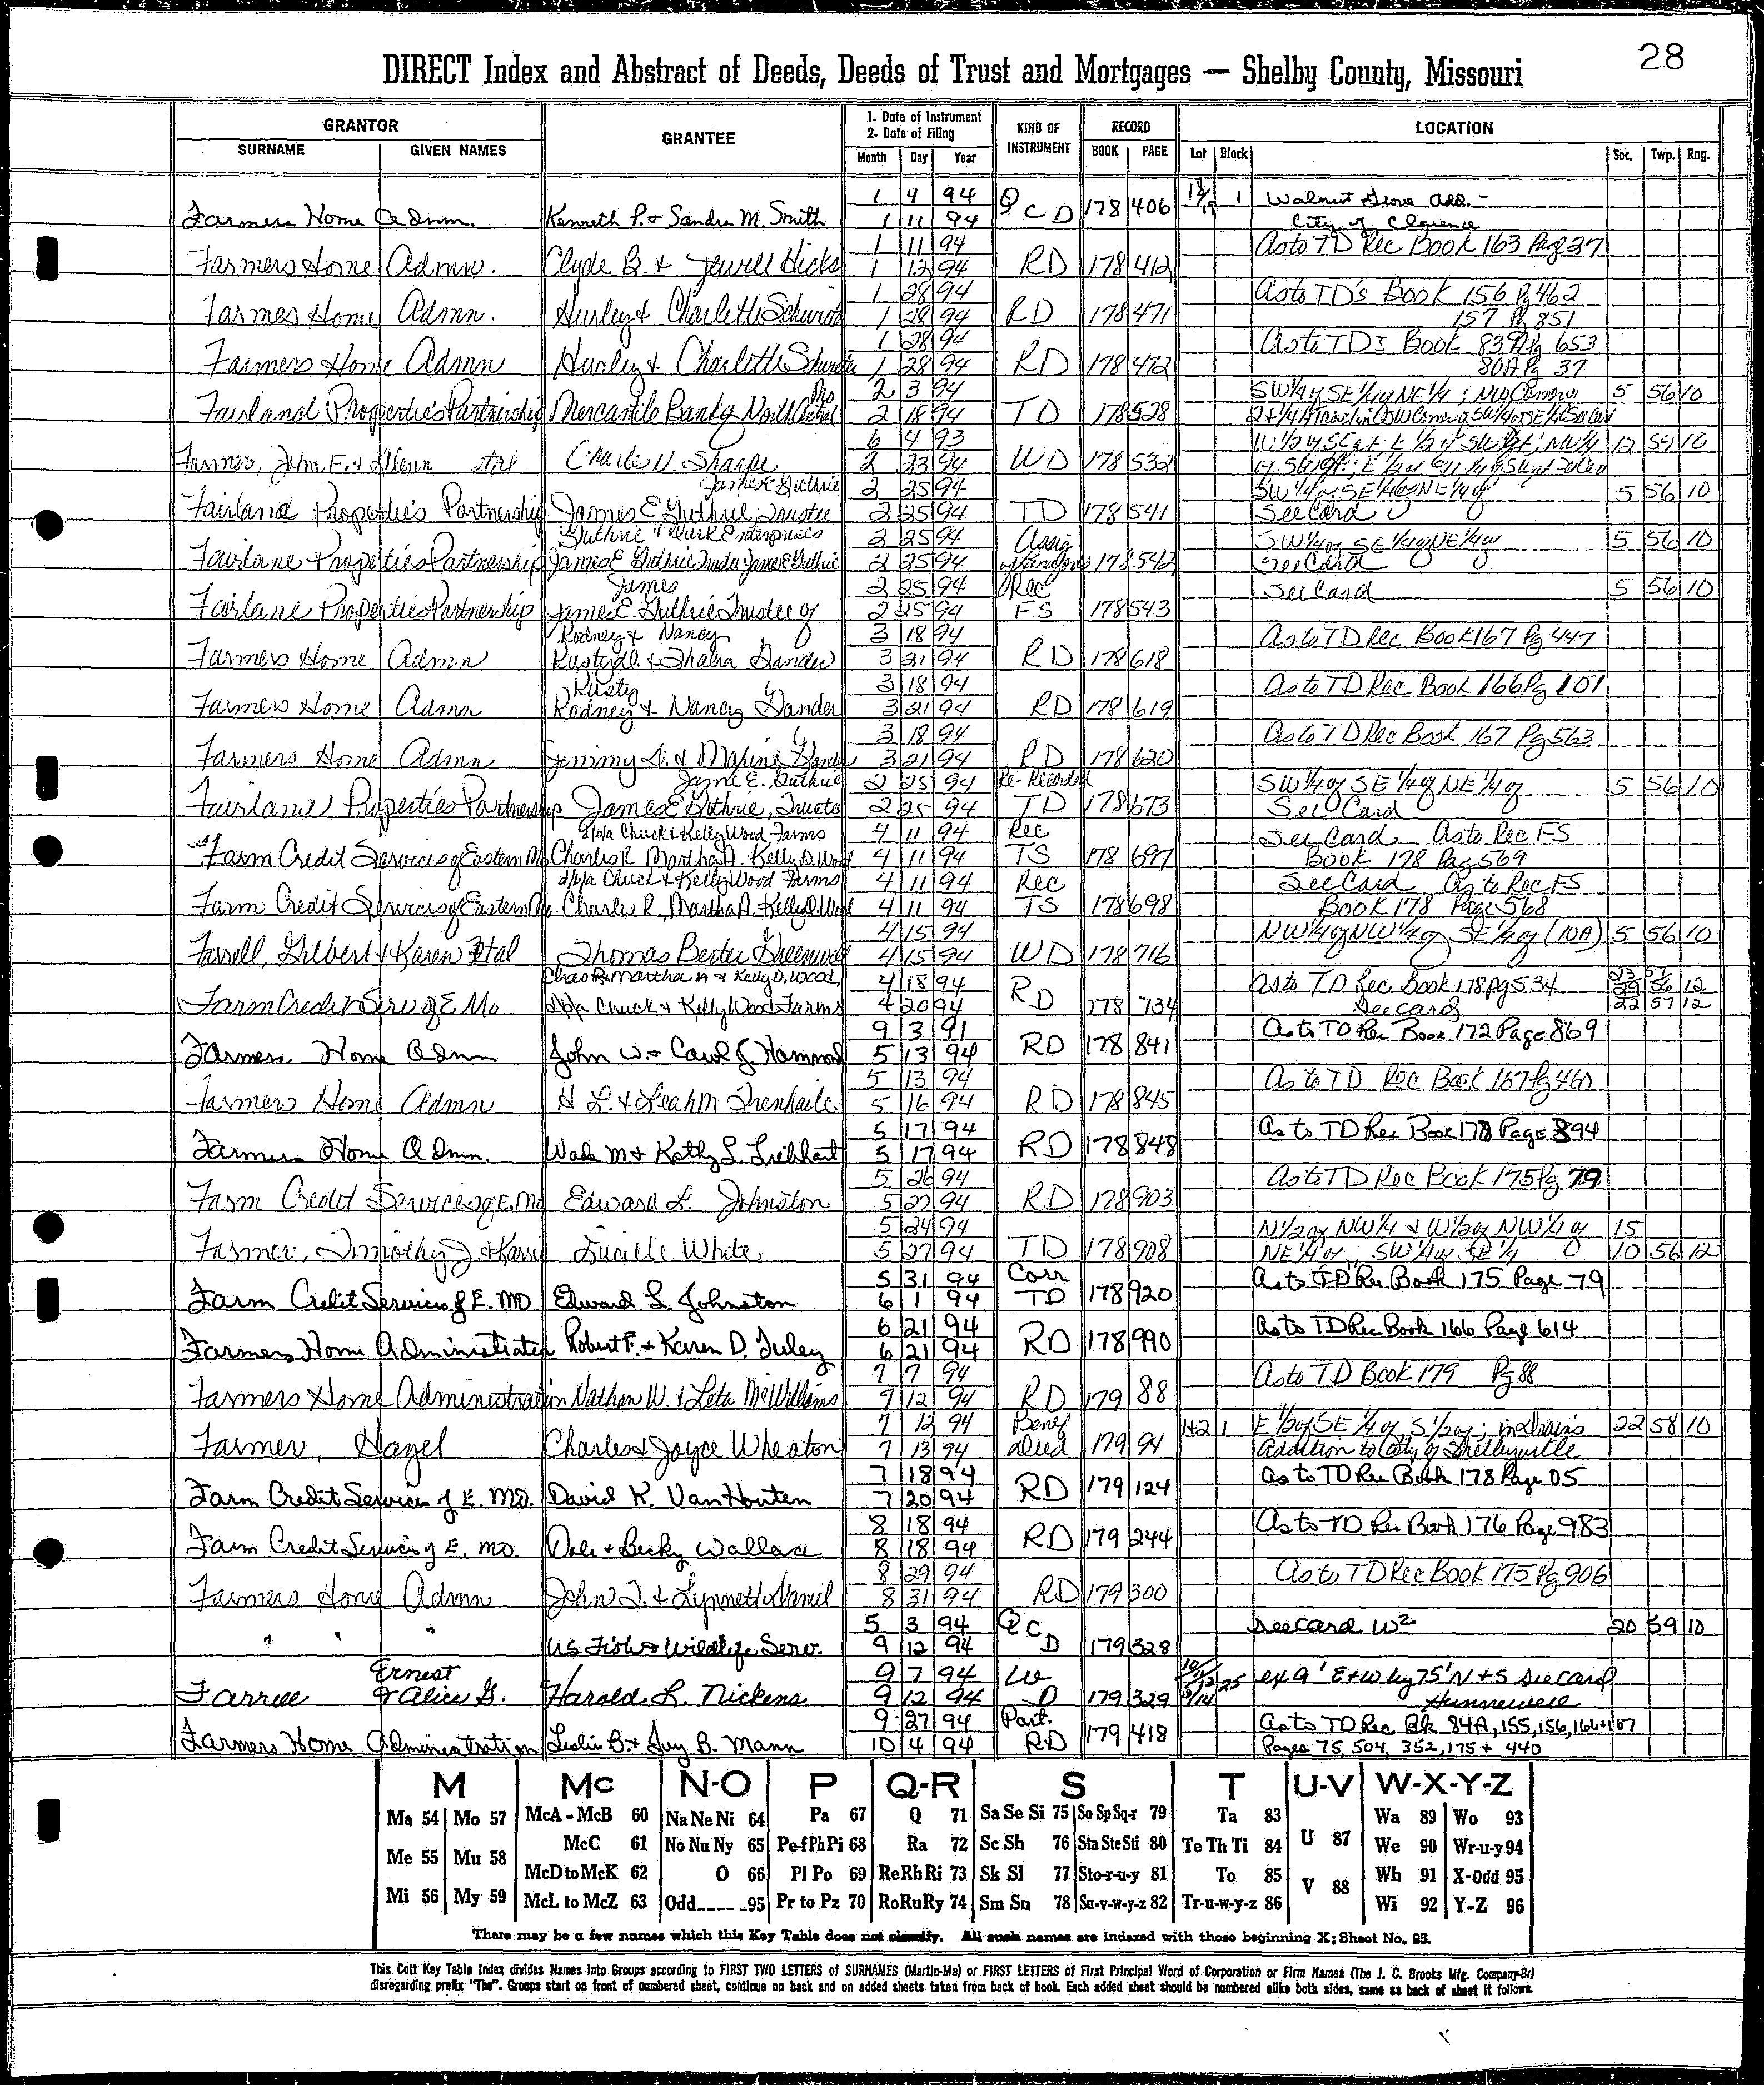 28
DIRECT Index and Abstract of Deeds, Deeds of Trust and Mortgages — Shelby County, Missouri
GRANTOR GRANTEE 1. Date of Instrument 2. Date of Filing KIND OF INSTRUMENT RECORD LOCATION
SURNAME GIVEN NAMES Month Day Year BOOK PAGE Lot Block Sec. Twp. Rng.
1 4 94 1 Walnut Grove Add. -
Farmers Home Admn. Kenneth P. & Sandra M. Smith 1 11 94 Q C D 178 406 City of Clarence
1 11 94 As to TD Rec Book 163 Page 37
Farmers Home Admn. Clyde B. & Jewell Hicks 1 12 94 RD 178 412
1 28 94 As to TD's Book 156 Pg 462
Farmers Home Admn. Hurley & Charlotte 1 28 94 RD 178 471 157 Pg 851
1 28 94 As to TDs Book 839 Pg 653
Farmers Home Admn Hurley & Charlotte 1 28 94 RD 178 472 80A Pg 37
Mo 2 3 94 SW 1/4 of SE 1/4 of NE 1/4; 5 56 10
Fairland Properties Partnership Mercantile Bank of North Central 2 18 94 TD 178 528
6 4 93 12 59 10
Farmer, John F. & Glenn etal Charles V. Sharpe 2 23 94 WD 178 532
James E Guthrie 2 25 94 SW 1/4 of SE 1/4 of NE 1/4 of 5 56 10
Fairland Properties Partnership James E Guthrie, Trustee 2 25 94 TD 178 541 See Card
Guthrie & Enterprises 2 25 94 Assig SW 1/4 of SE 1/4 of NE 1/4 of 5 56 10
Fairlane Properties Partnership James E Guthrie Trustee James E Guthrie 2 25 94 178 542 See Card
James 2 25 94 Rec See Card 5 56 10
Fairlane Properties Partnership James E. Guthrie Trustee of 2 25 94 FS 178 543
Rodney & Nancy 3 18 94 As to TD Rec Book 167 Pg 447
Farmers Home Admn Rusty D. & 3 21 94 RD 178 618
Rusty 3 18 94 As to TD Rec Book 166 Pg 101
Farmers Home Admn Rodney & Nancy 3 21 94 RD 178 619
3 18 94 As to TD Rec Book 167 Pg 563
Farmers Home Admn Jimmy D. & 3 21 94 RD 178 620
James E. Guthrie 2 25 94 Re-Recorded SW 1/4 of SE 1/4 of NE 1/4 of 5 56 10
Fairlane Properties Partnership James E Guthrie, Trustee 2 25 94 TD 178 673 See Card
d/b/a Chuck & Kelly Wood Farms 4 11 94 Rec See Card As to Rec FS
Farm Credit Services of Eastern Mo Charles R. Martha A. Kelly D. Wood 4 11 94 TS 178 697 Book 178 Pag 569
d/b/a Chuck & Kelly Wood Farms 4 11 94 Rec See Card As to Rec FS
Farm Credit Services of Eastern Mo. Charles R., Martha A. Kelly D. Wood 4 11 94 TS 178 698 Book 178 Page 568
4 15 94 NW 1/4 of NW 1/4 of SE 1/4 of (10A) 5 56 10
Farrell, Gilbert & Karen etal Thomas Bester Greenwell 4 15 94 WD 178 716
Chas R. Martha A & Kelly D. Wood, 4 18 94 R As to TD Rec Book 178 Pg 534 56 12
Farm Credit Serv of E Mo d/b/a Chuck & Kelly Wood Farms 4 20 94 D 178 734 See Card 22 57 12
9 3 91 As to TD Rec Book 172 Page 869
Farmers Home Admn John W. & Carol J. Hammond 5 13 94 RD 178 841
5 13 94 As to TD Rec Book 167 Pg 460
Farmers Home Admn H L. & Leah M Trenhaile. 5 16 94 RD 178 845
5 17 94 As to TD Rec Book 178 Page 394
Farmers Home Admn. Wade M & Kathy L. Liebhart 5 17 94 RD 178 848
5 26 94 As to TD Rec Book 175 Pg 79
Farm Credit Services of E. Mo Edward L. Johnston 5 27 94 R.D 178 903
5 24 94 N 1/2 of NW 1/4 & W 1/2 of NW 1/4 of 15
Farmer, Timothy J. & Karri Lucille White. 5 27 94 TD 178 908 NE 1/4 of SW 1/4 of SE 1/4 10 56 12
5 31 94 Corr As to TD Rec Book 175 Page 79
Farm Credit Services of E. MO Edward L. Johnston 6 1 94 TD 178 920
6 21 94 As to TD Rec Book 166 Page 614
Farmers Home Administration Robert F. & Karen D. Tuley 6 21 94 RD 178 990
7 7 94 As to TD Book 179 Pg 88
Farmers Home Administration Nathan W. & Leta McWilliams 7 12 94 RD 179 88
7 12 94 Benef 1+2 1 E 1/2 of SE 1/4 of S 1/2 of; 22 58 10
Farmer, Hazel Charles & Joyce Wheaton 7 13 94 deed 179 94 Addition to City of Shelbyville
7 18 94 As to TD Rec Book 178 Page 05
Farm Credit Services of E. MO. David K. VanHouten 7 20 94 RD 179 124
8 18 94 As to TD Rec Book 176 Page 983
Farm Credit Services of E. MO. Dale & Becky Wallace 8 18 94 RD 179 244
8 29 94 As to TD Rec Book 175 Pg 906
Farmers Home Admn John T. & Lynnette Daniel 8 31 94 RD 179 300
5 3 94 QC See Card W2 20 59 10
" " " US Fish & Wildlife Serv. 9 12 94 D 179 328
Ernest 9 7 94 W 25 ex 9' E+W by 75' N+S See Card
Farrell & Alice G. Harold L. Nickens 9 12 94 D 179 329 Hunnewell
9 27 94 Part. As to TD Rec Bk 84A, 155, 156, 166+167
Farmers Home Administration Leslie B. & Guy B. Mann 10 4 94 RD 179 418 Pages 75, 504, 352, 175 + 440
M Mc N-O P Q-R S T U-V W-X-Y-Z
Ma 54 Mo 57 McA - McB 60 Na Ne Ni 64 Pa 67 Q 71 Sa Se Si 75 So Sp Sq-r 79 Ta 83 U 87 Wa 89 Wo 93
Me 55 Mu 58 McC 61 No Nu Ny 65 Pe-f Ph Pi 68 Ra 72 Sc Sh 76 Sta Ste Sti 80 Te Th Ti 84 We 90 Wr-u-y 94
McD to McK 62 O 66 Pl Po 69 Re Rh Ri 73 Sk Sl 77 Sto-r-u-y 81 To 85 V 88 Wh 91 X-Odd 95
Mi 56 My 59 McL to McZ 63 Odd 95 Pr to Pz 70 Ro Ru Ry 74 Sm Sn 78 Su-v-w-y-z 82 Tr-u-w-y-z 86 Wi 92 Y-Z 96
There may be a few names which this Key Table does not classify. All such names are indexed with those beginning X; Sheet No. 95.
This Cott Key Table Index divides Names into Groups according to FIRST TWO LETTERS of SURNAMES (Martin-Ma) or FIRST LETTERS of First Principal Word of Corporation or Firm Names (The J. C. Brooks Mfg. Company-Br)
disregarding prefix "The". Groups start on front of numbered sheet, continue on back and on added sheets taken from back of book. Each added sheet should be numbered alike both sides, same as back of sheet it follows.